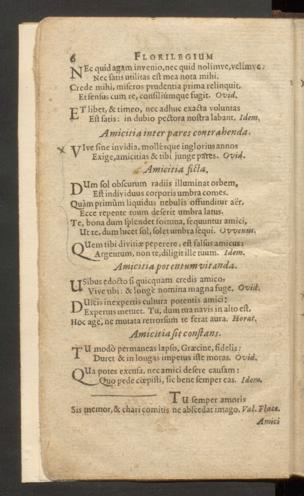 6 FLORILEGIUM
NEc quid agam invenio, nec quid nolimve, velimve:
Nec satis utilitas est mea nota mihi.
Crede mihi, miseros prudentia prima relinquit,
Et sensus cum re, consiliumque fugit. Ovid.
ET libet, & timeo, nec adhuc exacta voluntas
Est satis: in dubio pectora nostra labant. Idem.
Amicitia inter pares contrahenda.
VIve sine invidia, mollesque inglorius annos
Exige, amicitias & tibi junge pares. Ovid.
Amicitia ficta.
DUm sol obscurum radiis illuminat orbem,
Est individuus corporis umbra comes.
Quàm primùm liquidus nebulis offunditur aër.
Ecce repente tuum deserit umbra latus.
Te, bona dum splendet fortuna, sequuntur amici,
Ut te, dum lucet sol, solet umbra sequi. Ovvenus.
QUem tibi divitiæ peperere, est falsus amicus:
Argentum, non te, diligit ille tuum. Idem.
Amicitia potentum vitanda.
USibus edocto si quicquam credis amico,
Vive tibi: & longè nomina magna fuge. Ovid.
DUlcis inexpertis cultura potentis amici:
Expertus metuet. Tu, dum tua navis in alto est,
Hoc age, ne mutata retrorsum te ferat aura. Horat.
Amicitia sit constans.
TU modò permaneas lapso, Græcine, fidelis:
Duret & in longas impetus iste moras. Ovid.
QUa potes excusa, nec amici desere causam:
Quo pede cœpisti, sic bene semper eas. Idem.
TU semper amoris
Sis memor, & chari comitis ne abscedat imago. Val. Flacc.
Amici